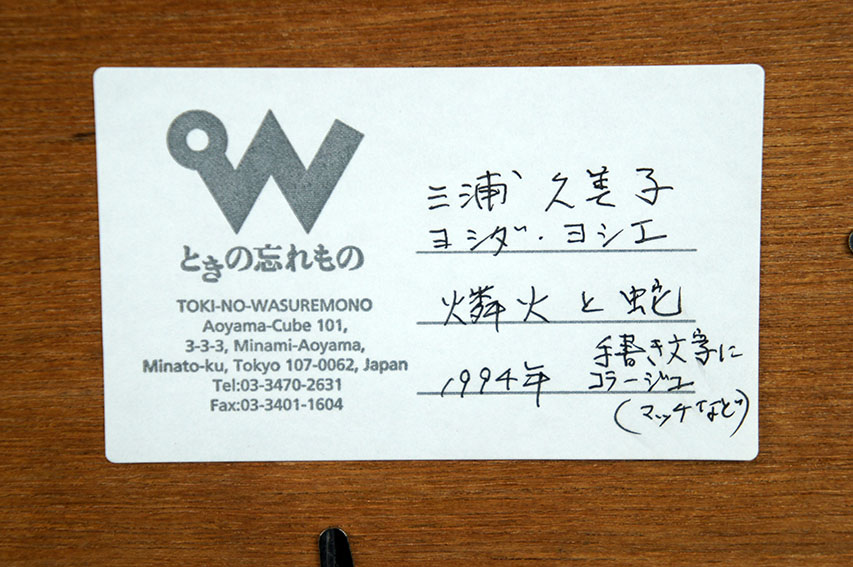 ときの忘れもの
TOKI-NO-WASUREMONO
Aoyama-Cube 101,
3-3-3, Minami-Aoyama,
Minato-ku, Tokyo 107-0062, Japan
Tel:03-3470-2631
Fax:03-3401-1604
三浦 久美子
ヨシダ・ヨシエ
燐火と蛇
1994年
手書き文字に
コラージュ
(マッチなど)